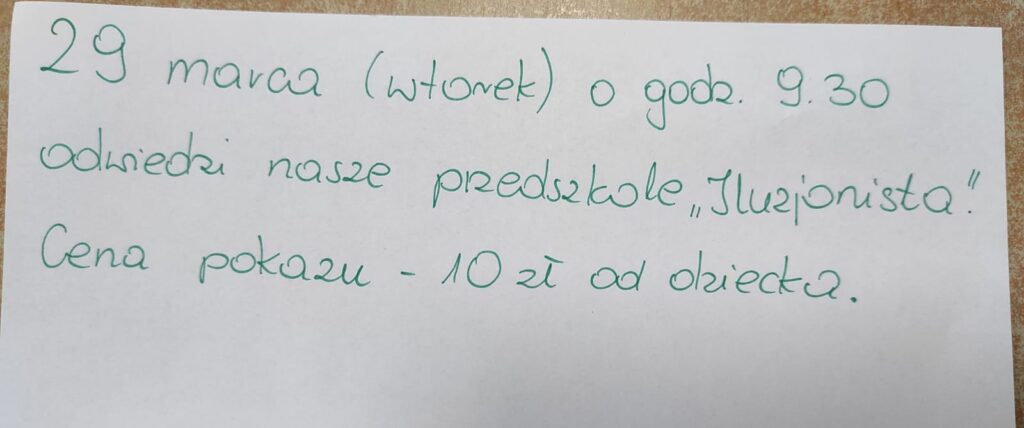 29 marca (wtorek) o godz. 9.30
odwiedzi nasze przedszkole „Iluzjonista".
Cena pokazu - 10 zł od dziecka.